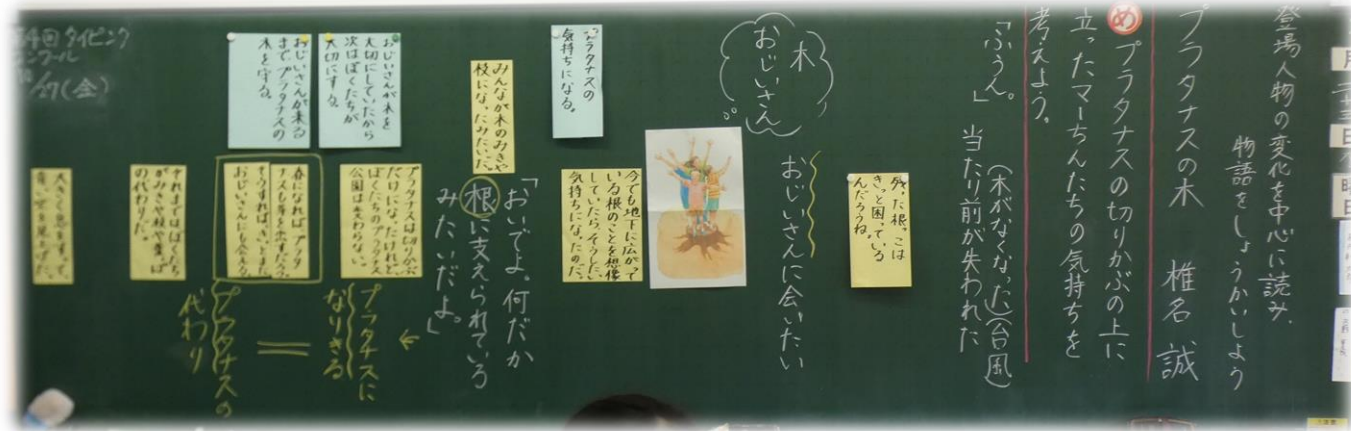 登場人物の変化を中心に読み、
物語をしょうかいしよう
プラタナスの木 椎名 誠
め プラタナスの切りかぶの上に
立ったマーちんたちの気持ちを
考えよう。
「ふうん。」
(木がなくなった)(台風)
当たり前が失われた
残った根っこは
きっと困っている
んだろうね。
木
おじいさん
おじいさんに会いたい
プラタナスの
気持ちになる。
今でも地下に広がって
いる根のことを想像
していたら、そうしたい
気持ちになったのだ。
みんなが木のみきや
枝になったみたいだ。
「おいでよ。何だか
根に支えられている
みたいだよ。」
おじいさんが木を
大切にしていたから
次はぼくたちが
大切にする。
おじいさんが来る
まで、プラタナスの
木を守る。
プラタナスは切りかぶ
だけになったけれど、
ぼくたちのプラタナス
公園は変わらない。
春になれば、プラタ
ナスも芽を出すだろう。
そうすれば、きっとまた
おじいさんにも会える。
それまではぼくたち
がみきや枝や葉っぱ
の代わりだ。
プラタナスに
なりきる
＝
プラタナスの
代わり
第4回 タイピング
27(金)